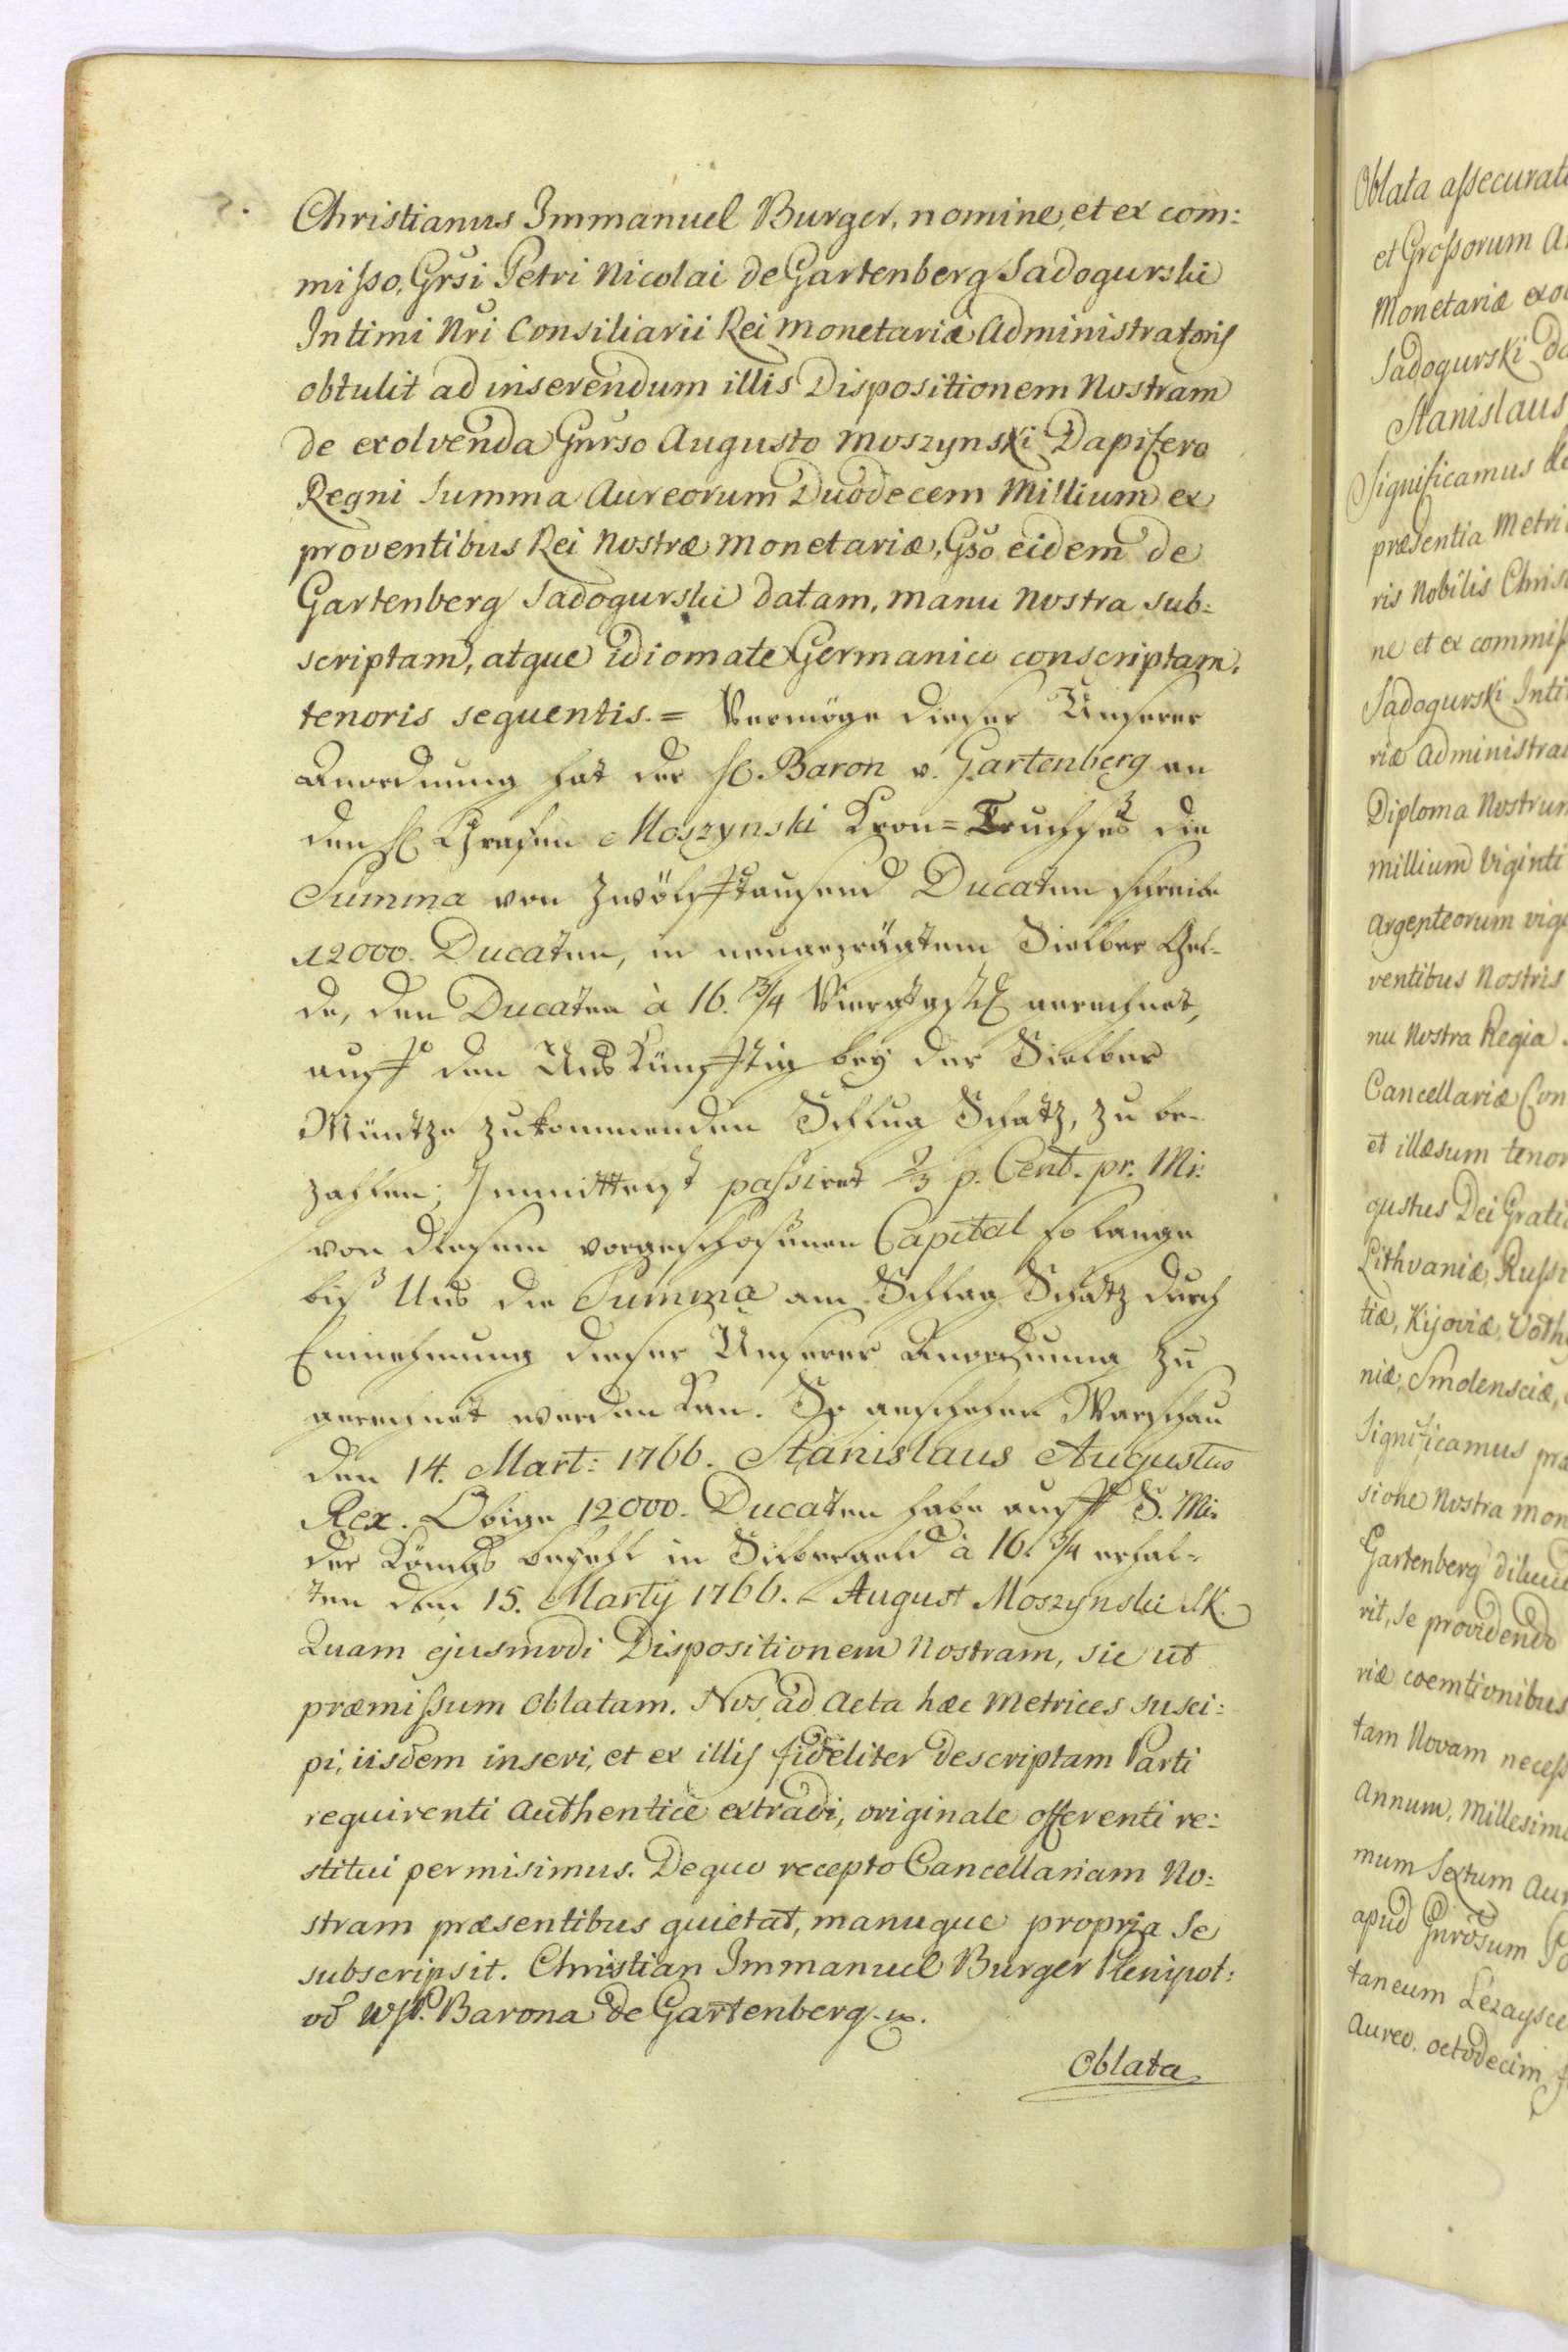 Christianus Immanuel Burger, nomine, et ex com:
misso, Grsi Petri Nicolai de Gartenberg Sadogurski
Intimi Nri Consiliarii Rei Monetariæ Administratoris
obtulit ad inserendum illis Dispositionem Nostram
de exolvenda Gnrso Augusto Moszynski Dapifero
Regni Summa Aureorum Duodecem Millium ex
proventibus Rei Nostræ Monetariæ, Gso eidem de
Gartenberg Sadogurski datam, manu Nostra sub:
scriptam, atque idiomate Germanico conscriptam,
tenoris sequentis. = Vermöge dieser Unserer
Anordnung hat der H. Baron v. Gartenberg an
den H. Grafen Moszynski Kron=Truchses die
Summa von Zwölfftausend Ducaten schreibe
12000. Ducaten, in neugeprägtem Sielber Gel-
de, den Ducaten à 16. 3/4 gerechnet,
auff den Uns künfftig bey der Sielber
Müntze zukommenden Schlag Schatz, zu be-
zahlen; Immittelst passiret 2/3 p. Cent. pr. Mi:
von diesem vorgeschossenen Capital so lange
biß Uns die Summa am Schlag Schatz durch
Einnehmung dieser Unserer Anordnung zu
gerechnet werden kan. So geschehen Warschau
den 14. Mart: 1766. Stanislaus Augustus
Rex. Obige 12000. Ducaten habe auff S. Mi.
der Königs befehl in Silbergeld à 16. 3/4 erhal-
ten den 15. Martij 1766. August Moszynski S.K.
Quam ejusmodi Dispositionem Nostram, sic ut
præmissum Oblatam. Nos ad Acta hæc Metrices susci:
pi, iisdem inseri, et ex illis fideliter descriptam Parti
requirenti Authentice extradi, originale offerenti re:
stitui permisimus. De quo recepto Cancellariam No:
stram præsentibus quietat, manuque propria Se
subscripsit. Christian Immanuel Burger Plenipot:
od WJP. Barona de Gartenberg.
Oblata
Oblata assecurat
et Grossorum A
Monetariæ exo
Sadogurski Da
Stanislaus
Significamus
præsentia Metri
ris Nobilis Chris
ne et ex commiss
Sadogurski Inti
riæ Administrat
Diploma Nostrum
millium Viginti
Argenteorum vig
ventibus Nostris
nu Nostra Regia
Cancellariæ Con
et illæsum tenor
gustus Dei Grati
Lithvaniæ, Russi
tiæ, Kijoviæ, Volh
niæ, Smolensciæ,
Significamus præ
sione Nostra Mon
Gartenberg
rit, se providendo
riæ coemtionibus
tam Novam necess
Annum, Millesim
mum Sextum Aur
apud Gnrosum Po
taneum Lezaysce
Aureo. octodecim